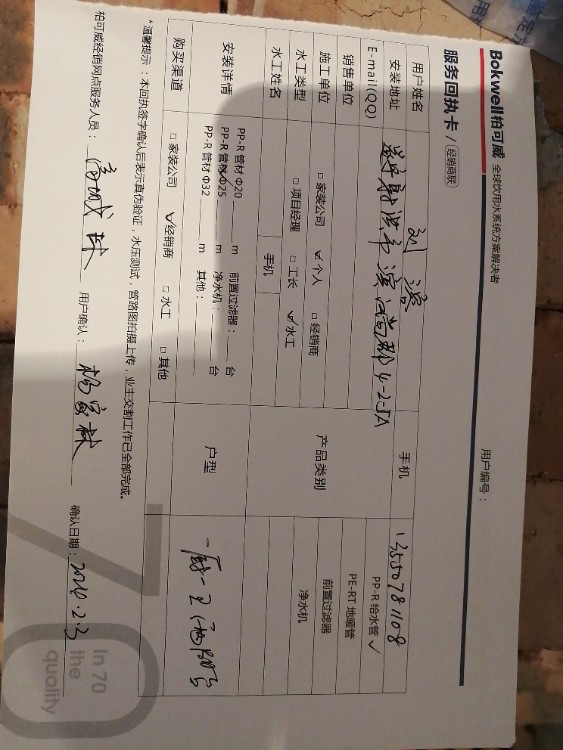 Bokwell柏可威 全球饮用水系统方案解决者
服务回执卡 / 经销商联
用户编号：
用户姓名 刘 手机 13550781108
安装地址 遂宁射洪市滨江尚都4-2-5A
E-mail(QQ)
销售单位
施工单位 □ 家装公司 ☑ 个人 □ 经销商
水工类型 □ 项目经理 □ 工长 ☑ 水工
水工姓名 手机
产品类别
PP-R 给水管 ✓
PE-RT 地暖管
前置过滤器
净水机
安装详情
PP-R 管材 Φ20 m 前置过滤器： 台
PP-R 管材 Φ25 m 净水机： 台
PP-R 管材 Φ32 m 其他：
户型 一厨一卫
购买渠道 □ 家装公司 ☑ 经销商 □ 水工 □ 其他
*温馨提示：本回执签字确认后表示真伪验证，水压测试，管路图拍摄上传，业主交割工作已全部完成。
柏可威经销网点服务人员： 用户确认： 确认日期：2024.2.3
70
In 70
the
quality